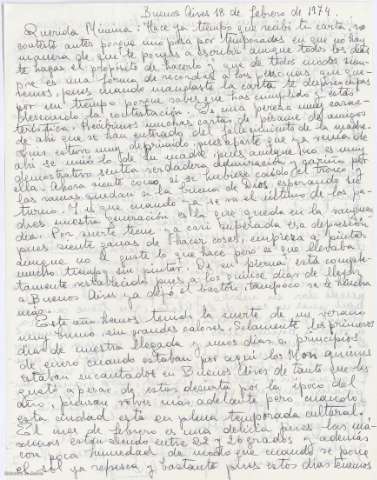 Buenos Aires 18 de febrero de 1974.
Querida Mimma: Hace ya tiempo que recibí tu carta, no
contesté antes porque uno pasa por temporadas en que no hay
manera de que te pongas a escribir aunque todos los días
te hagas el propósito de hacerlo y que de todos modos siem-
pre es una forma de recordar a las personas que que-
remos, pues cuando mandaste la carta te despreocupas
por un tiempo porque sabes que has cumplido y estás
esperando la contestación. Es una pereza muy carac-
terística. Recibimos muchas cartas de pésame de amigos
de ahí que se han enterado del fallecimiento de la madre.
estuvo muy deprimido, pues aparte que ya venía de
ahí se unió lo de su madre, pues aunque no es muy
demostrativo sentía verdadera admiración y cariño por
ella. Ahora siente como si se hubiese caído el tronco y
las ramas quedan a la buena de Dios esperando su
turno. Y es que cuando ya se va el último de los pa-
dres nuestra generación es la que queda en la vanguar-
dia. Por suerte tiene ya casi superada esa depresión,
pues siente ganas de hacer cosas, empieza a pintar
aunque no le guste lo que hace pero es que llevaba
mucho tiempo sin pintar. De su pierna está comple-
tamente restablecido pues a los quince días de llegar
a Buenos Aires ya dejó el bastón, tampoco se le hincha
más.
Este año hemos tenido la suerte de un verano
muy bueno, sin grandes calores. Solamente los primeros
días de nuestra llegada y unos días a principios
de enero cuando estaban por aquí los
estaban encantados en Buenos Aires de tanto que les
gustó a pesar de estar desierta por la época del
año, piensan volver más adelante pero cuando
esta ciudad está en plena temporada cultural.
El mes de febrero es una delicia pues las má-
ximas están siendo entre 22 y 26 grados y además
con poca humedad de modo que cuando se pone
el sol ya refresca y bastante pues estos días hemos